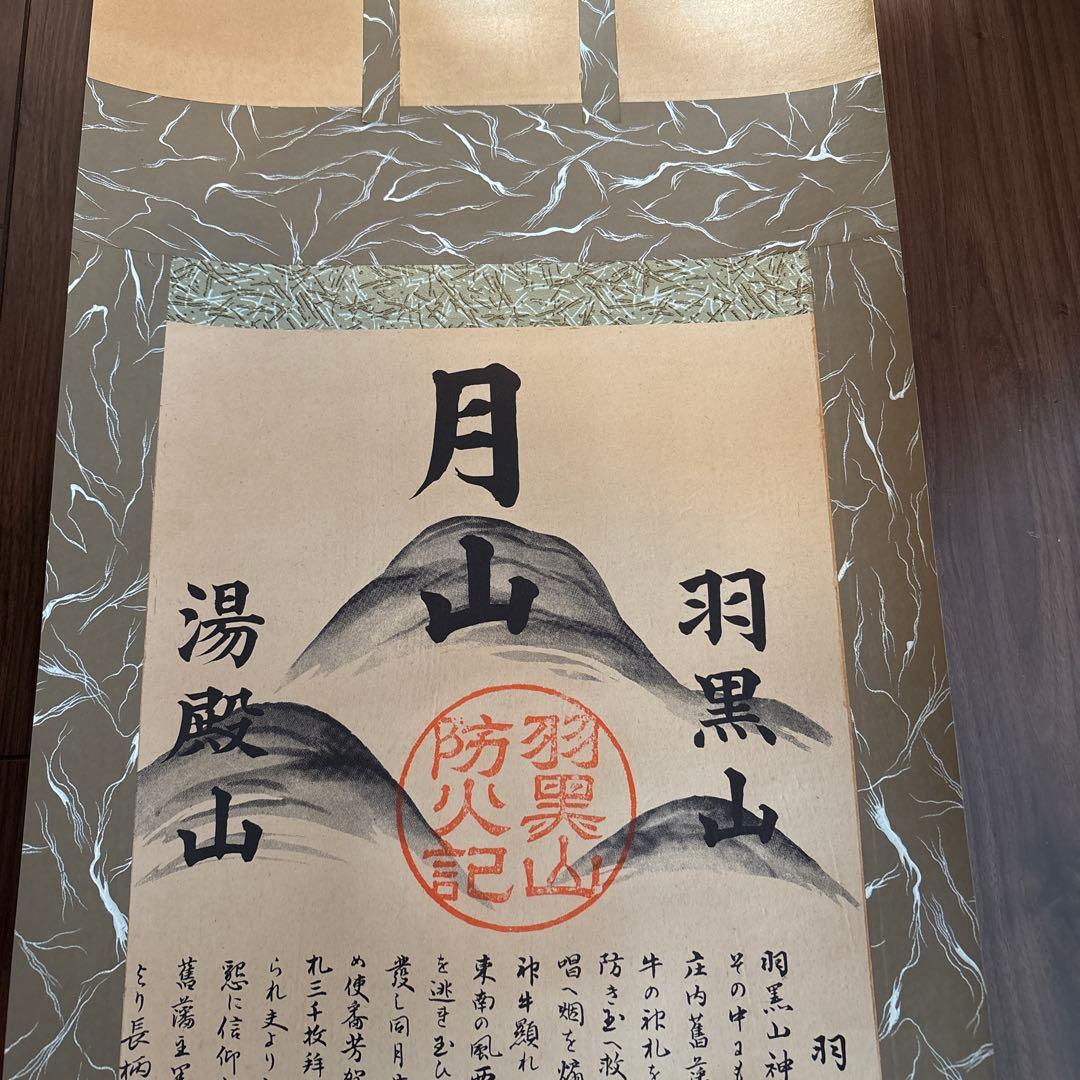 月山
羽黒山
湯殿山
羽黒山
防火記
羽
羽黒山神
その中にも
庄内舊藩
牛の神札を
防き玉へ救
唱へ烟を
神牛顕れ
東南の風西
を逃き玉ひ
發し同月
め使番芳賀
札三千枚拝
られ夫より
懇に信仰
舊藩主
とり長柄